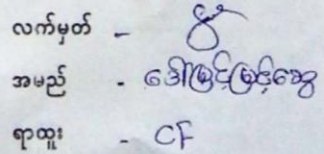 လက်မှတ် -
အမည် - ဒေါ်မြင့်မြင့်ဆွေ
ရာထူး - CF